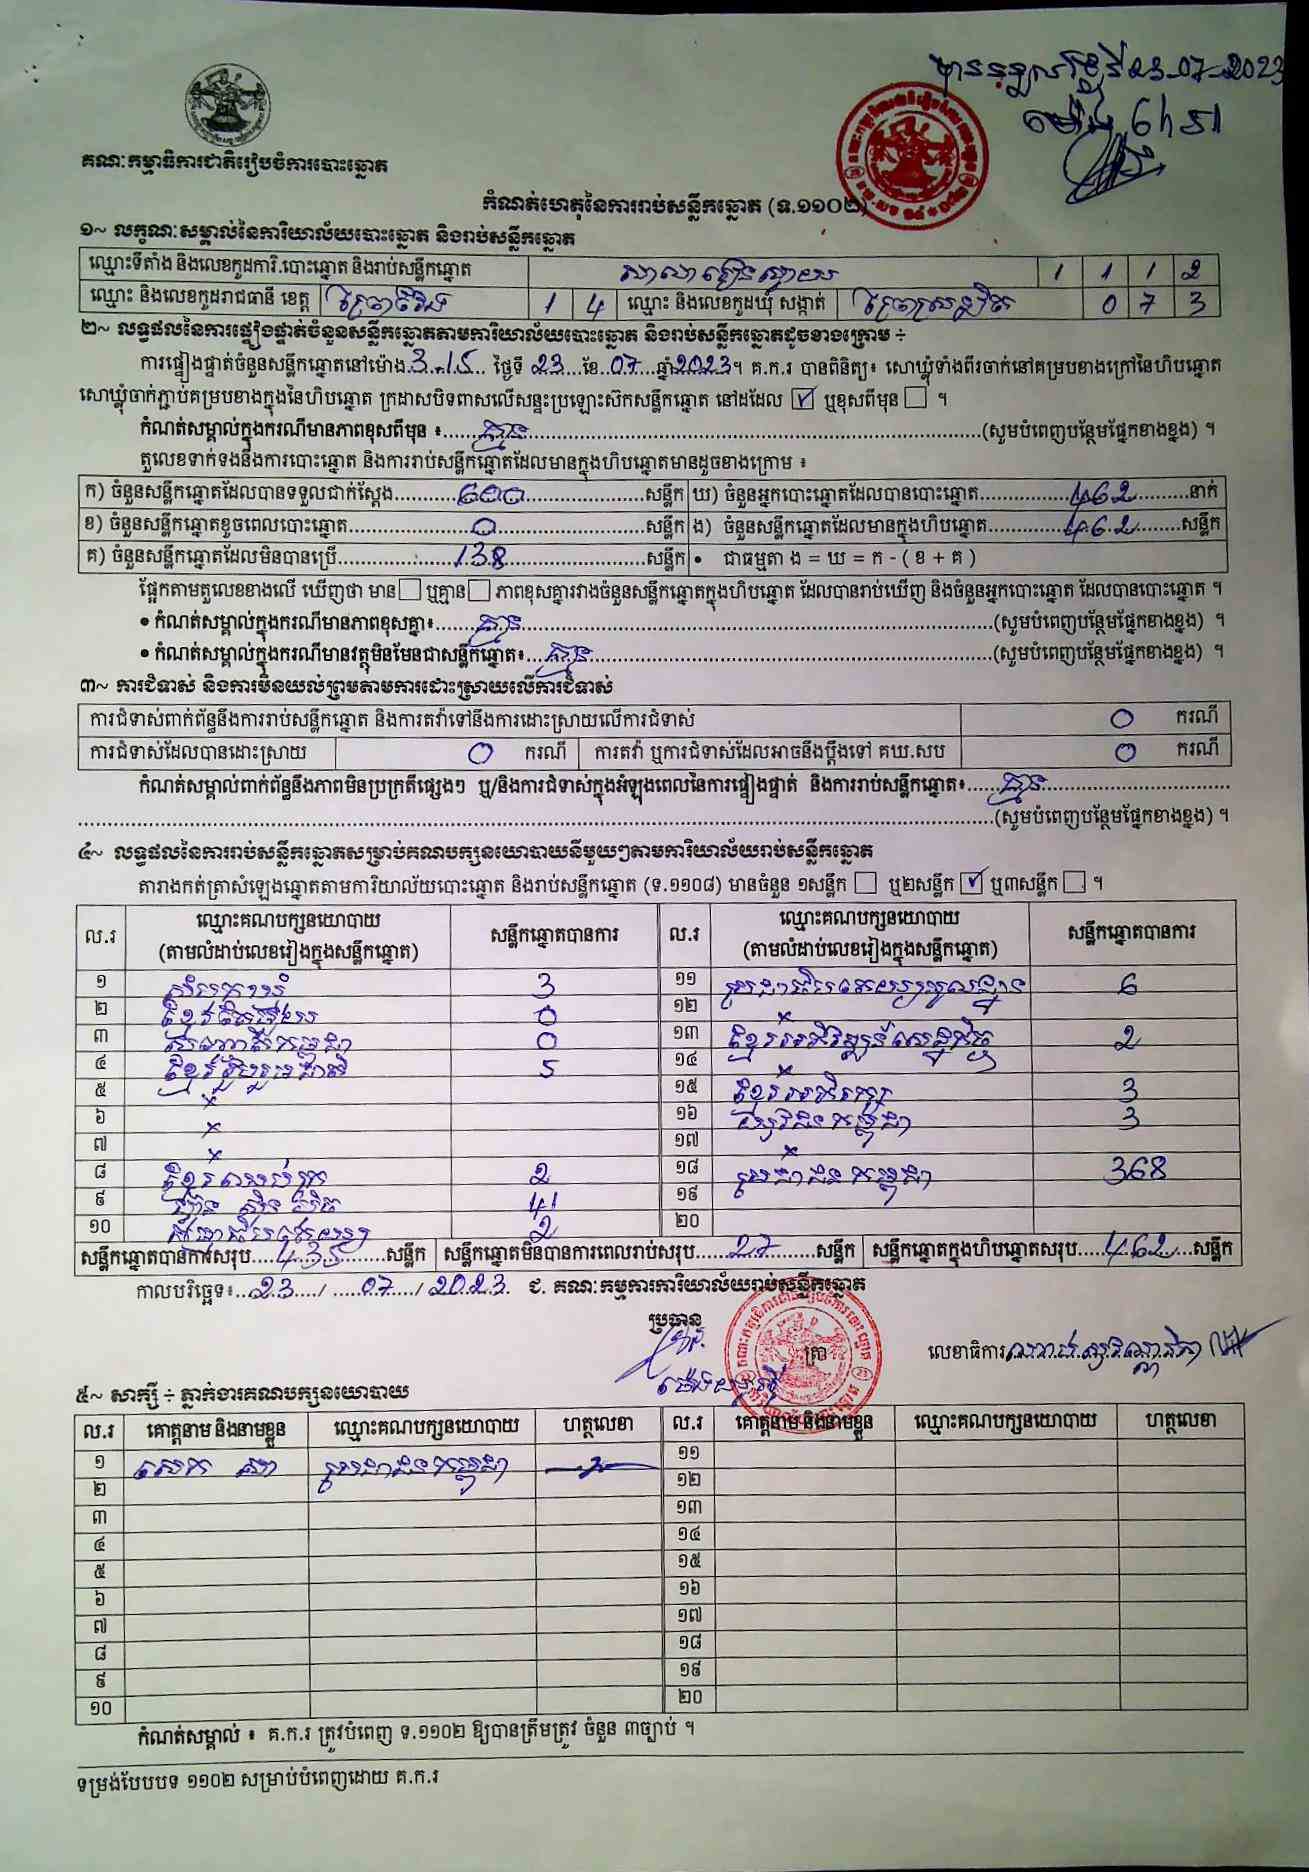 បានទទួលថ្ងៃទី 23-07-2023
ម៉ោង
គណៈកម្មាធិការជាតិរៀបចំការបោះឆ្នោត
កំណត់ហេតុនៃការរាប់សន្លឹកឆ្នោត (ទ.១១០២)
១~ លក្ខណៈសម្គាល់នៃការិយាល័យបោះឆ្នោត និងរាប់សន្លឹកឆ្នោត
ឈ្មោះទីតាំង និងលេខកូដការិ.បោះឆ្នោត និងរាប់សន្លឹកឆ្នោត សាលារៀនស្វាយ 1 1 1 2
ឈ្មោះ និងលេខកូដរាជធានី ខេត្ត ព្រៃវែង 1 4 ឈ្មោះ និងលេខកូដឃុំ សង្កាត់ 0 7 3
២~ លទ្ធផលនៃការផ្ទៀងផ្ទាត់ចំនួនសន្លឹកឆ្នោតតាមការិយាល័យបោះឆ្នោត និងរាប់សន្លឹកឆ្នោតដូចខាងក្រោម ÷
ការផ្ទៀងផ្ទាត់ចំនួនសន្លឹកឆ្នោតនៅម៉ោង 3:15 ថ្ងៃទី 23 ខែ 07 ឆ្នាំ 2023។ គ.ក.រ បានពិនិត្យ៖ សោឃ្លុំទាំងពីរចាក់នៅគម្របខាងក្រៅនៃហិបឆ្នោត
សោឃ្លុំចាក់ភ្ជាប់គម្របខាងក្នុងនៃហិបឆ្នោត ក្រដាសបិទពាសលើសន្ទះប្រឡោះស៊កសន្លឹកឆ្នោត នៅដដែល ☑ ឬខុសពីមុន ☐ ។
កំណត់សម្គាល់ក្នុងករណីមានភាពខុសពីមុន ៖ គ្មាន (សូមបំពេញបន្ថែមផ្នែកខាងខ្នង) ។
តួលេខទាក់ទងនឹងការបោះឆ្នោត និងការរាប់សន្លឹកឆ្នោតដែលមានក្នុងហិបឆ្នោតមានដូចខាងក្រោម ៖
ក) ចំនួនសន្លឹកឆ្នោតដែលបានទទួលជាក់ស្តែង 600 សន្លឹក ឃ) ចំនួនអ្នកបោះឆ្នោតដែលបានបោះឆ្នោត 462 នាក់
ខ) ចំនួនសន្លឹកឆ្នោតខូចពេលបោះឆ្នោត 0 សន្លឹក ង) ចំនួនសន្លឹកឆ្នោតដែលមានក្នុងហិបឆ្នោត 462 សន្លឹក
គ) ចំនួនសន្លឹកឆ្នោតដែលមិនបានប្រើ 138 សន្លឹក • ជាធម្មតា ង = ឃ = ក - ( ខ + គ )
ផ្អែកតាមតួលេខខាងលើ ឃើញថា មាន ☐ ឬគ្មាន ☐ ភាពខុសគ្នារវាងចំនួនសន្លឹកឆ្នោតក្នុងហិបឆ្នោត ដែលបានរាប់ឃើញ និងចំនួនអ្នកបោះឆ្នោត ដែលបានបោះឆ្នោត ។
• កំណត់សម្គាល់ក្នុងករណីមានភាពខុសគ្នា៖ គ្មាន (សូមបំពេញបន្ថែមផ្នែកខាងខ្នង) ។
• កំណត់សម្គាល់ក្នុងករណីមានវត្ថុមិនមែនជាសន្លឹកឆ្នោត៖ គ្មាន (សូមបំពេញបន្ថែមផ្នែកខាងខ្នង) ។
៣~ ការជំទាស់ និងការមិនយល់ព្រមតាមការដោះស្រាយលើការជំទាស់
ការជំទាស់ពាក់ព័ន្ធនឹងការរាប់សន្លឹកឆ្នោត និងការតវ៉ាទៅនឹងការដោះស្រាយលើការជំទាស់ 0 ករណី
ការជំទាស់ដែលបានដោះស្រាយ 0 ករណី ការតវ៉ា ឬការជំទាស់ដែលអាចនឹងប្តឹងទៅ គឃ.សប 0 ករណី
កំណត់សម្គាល់ពាក់ព័ន្ធនឹងភាពមិនប្រក្រតីផ្សេងៗ ឬ/និងការជំទាស់ក្នុងអំឡុងពេលនៃការផ្ទៀងផ្ទាត់ និងការរាប់សន្លឹកឆ្នោត៖ គ្មាន
(សូមបំពេញបន្ថែមផ្នែកខាងខ្នង) ។
៤~ លទ្ធផលនៃការរាប់សន្លឹកឆ្នោតសម្រាប់គណបក្សនយោបាយនីមួយៗតាមការិយាល័យរាប់សន្លឹកឆ្នោត
តារាងកត់ត្រាសំឡេងឆ្នោតតាមការិយាល័យបោះឆ្នោត និងរាប់សន្លឹកឆ្នោត (ទ.១១០៨) មានចំនួន ១សន្លឹក ☐ ឬ២សន្លឹក ☑ ឬ៣សន្លឹក ☐ ។
ល.រ ឈ្មោះគណបក្សនយោបាយ (តាមលំដាប់លេខរៀងក្នុងសន្លឹកឆ្នោត) សន្លឹកឆ្នោតបានការ ល.រ ឈ្មោះគណបក្សនយោបាយ (តាមលំដាប់លេខរៀងក្នុងសន្លឹកឆ្នោត) សន្លឹកឆ្នោតបានការ
១ 3 ១១ 6
២ 0 ១២ ×
៣ 0 ១៣ ខ្មែរអភិវឌ្ឍន៍សេដ្ឋកិច្ច 2
៤ ខ្មែររួបរួមជាតិ 5 ១៤ ×
៥ × ១៥ ខ្មែរអភិរក្ស 3
៦ × ១៦ យុវជនកម្ពុជា 3
៧ × ១៧ ×
៨ ខ្មែរឈប់ក្រ 2 ១៨ ប្រជាជនកម្ពុជា 368
៩ ហ៊្វុនស៊ិនប៉ិច 41 ១៩
១០ 2 ២០
សន្លឹកឆ្នោតបានការសរុប 435 សន្លឹក សន្លឹកឆ្នោតមិនបានការពេលរាប់សរុប 27 សន្លឹក សន្លឹកឆ្នោតក្នុងហិបឆ្នោតសរុប 462 សន្លឹក
កាលបរិច្ឆេទ៖ 23 / 07 / 2023 ជ. គណៈកម្មការការិយាល័យរាប់សន្លឹកឆ្នោត
ប្រធាន
ត្រា
លេខាធិការ
៥~ សាក្សី ÷ ភ្នាក់ងារគណបក្សនយោបាយ
ល.រ គោត្តនាម និងនាមខ្លួន ឈ្មោះគណបក្សនយោបាយ ហត្ថលេខា ល.រ គោត្តនាម និងនាមខ្លួន ឈ្មោះគណបក្សនយោបាយ ហត្ថលេខា
១ ប្រជាជនកម្ពុជា ១១
២ ១២
៣ ១៣
៤ ១៤
៥ ១៥
៦ ១៦
៧ ១៧
៨ ១៨
៩ ១៩
១០ ២០
កំណត់សម្គាល់ ៖ គ.ក.រ ត្រូវបំពេញ ទ.១១០២ ឱ្យបានត្រឹមត្រូវ ចំនួន ៣ច្បាប់ ។
ទម្រង់បែបបទ ១១០២ សម្រាប់បំពេញដោយ គ.ក.រ